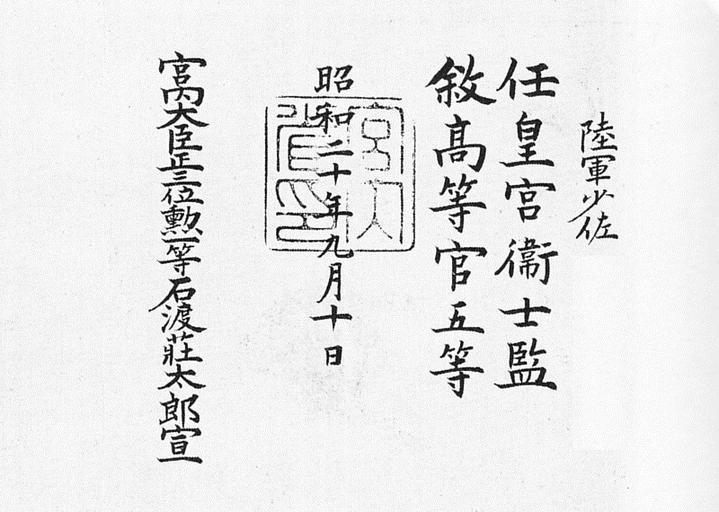 陸軍少佐
任皇宮衞士監
敘高等官五等
昭和二十年九月十日
宮内省印
宮内大臣正三位勲一等石渡莊太郎宣